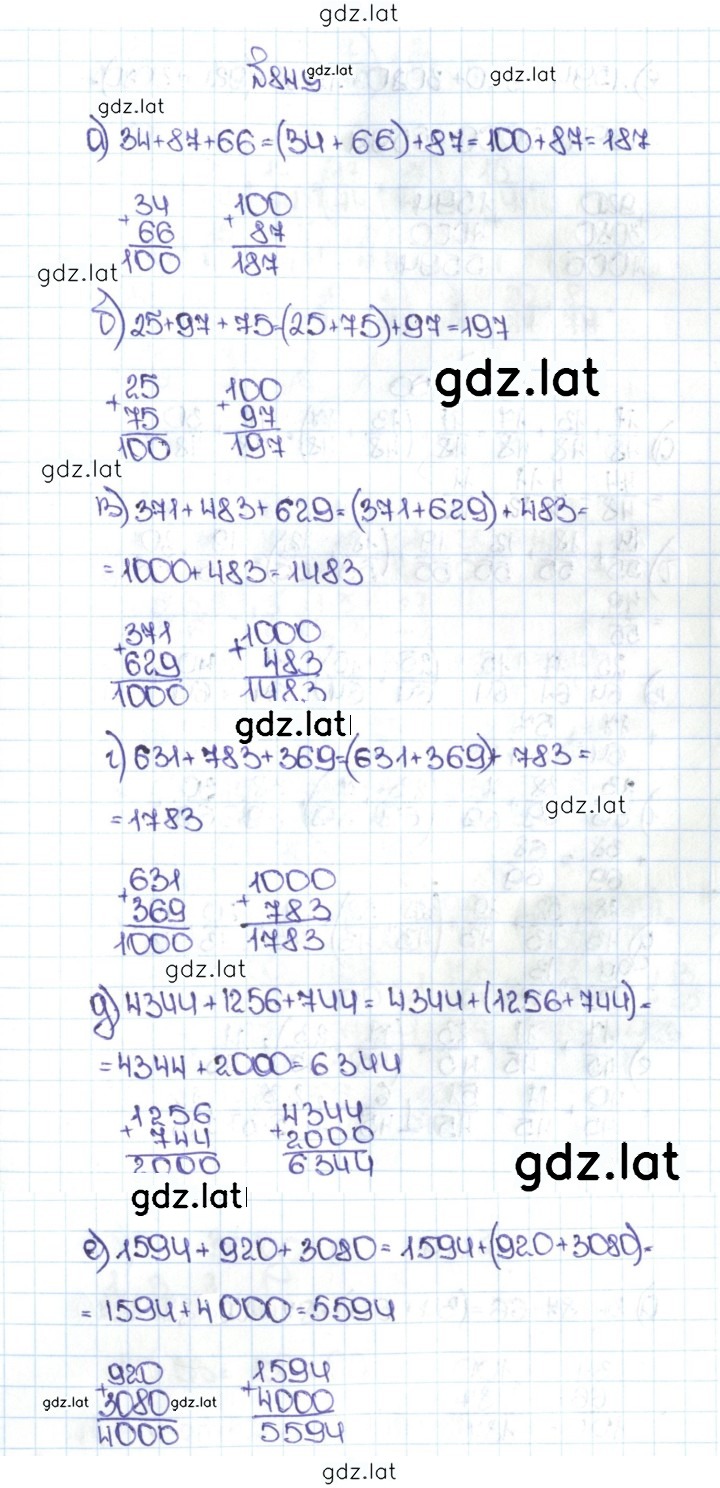 gdz.lat
№845
gdz.lat
gdz.lat
gdz.lat
а) 34+87+66=(34+66)+87=100+87=187
34 100
+ 66 + 87
100 187
gdz.lat
б) 25+97+75=(25+75)+97=197
25 100
+ 75 + 97
100 197
gdz.lat
gdz.lat
в) 371+483+629=(371+629)+483=
=1000+483=1483
371 1000
+ 629 + 483
1000 1483
gdz.lat
г) 631+783+369=(631+369)+783=
=1783
gdz.lat
631 1000
+ 369 + 783
1000 1783
gdz.lat
д) 4344+1256+744=4344+(1256+744)=
=4344+2000=6344
1256 4344
+ 744 + 2000
2000 6344
gdz.lat
gdz.lat
е) 1594+920+3080=1594+(920+3080)=
=1594+4000=5594
920 1594
+ 3080 + 4000
4000 5594
gdz.lat
gdz.lat
gdz.lat